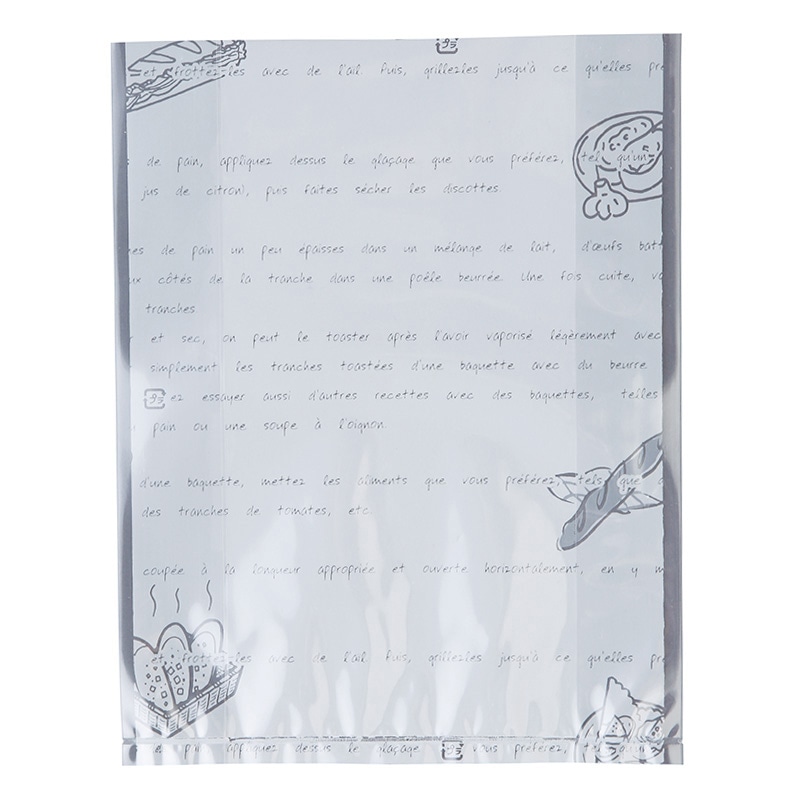 et frottez-les avec de l'ail. Puis, grillez-les jusqu'à ce qu'elles
de pain, appliquez dessus le glaçage que vous préférez, tel qu'un
jus de citron), puis faites sécher les discottes.
de pain un peu épaisses dans un mélange de lait, d'œufs
côtés de la tranche dans une poêle beurrée. Une fois cuite,
tranches
et sec, on peut le toaster après l'avoir vaporisé légèrement avec
simplement les tranches toastées d'une baguette avec du beurre
ez essayer aussi d'autres recettes avec des baguettes, telles
pain ou une soupe à l'oignon.
d'une baguette, mettez les aliments que vous préférez, tels que
des tranches de tomates, etc.
coupée à la longueur appropriée et ouverte horizontalement, en y m
et frottez-les avec de l'ail. Puis, grillez-les jusqu'à ce qu'elles
pain appliquez dessus le glaçage vous préférez, tel qu'un